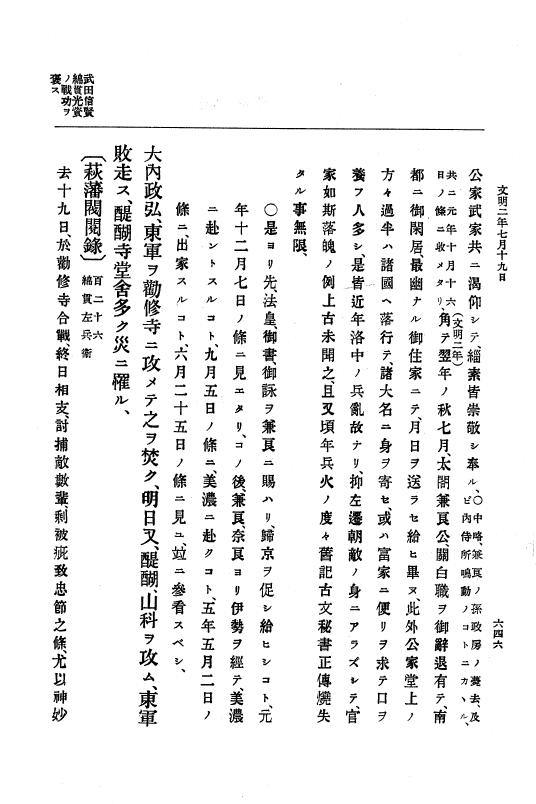 文明二年七月十九日
六四六
公家武家共ニ渴仰シテ、緇素皆崇敬シ奉ル、〇中略、兼良ノ孫政房ノ薨去、及ビ內侍所鳴動ノコトニカヽル、
共ニ元年十月十六日ノ條ニ收メタリ、角テ翌年(文明二年)ノ秋七月、太閤兼良公關白職ヲ御辭退有テ、南
都ニ御閑居、最幽ナル御住家ニテ、月日ヲ送ラセ給ヒ畢ヌ、此外公家堂上ノ
方々過半ハ諸國ヘ落行テ、諸大名ニ身ヲ寄セ、或ハ富家ニ便リヲ求テ口ヲ
養フ人多シ、是皆近年洛中ノ兵亂故ナリ、抑左遷朝敵ノ身ニアラズシテ、官
家如斯落魄ノ例上古未聞之、且又頃年兵火ノ度々舊記古文秘書正傳燒失
タル事無限、
〇是ヨリ先、法皇、御書、御詠ヲ兼良ニ賜ハリ、歸京ヲ促シ給ヒシコト、元
年十二月七日ノ條ニ見エタリ、コノ後、兼良、奈良ヨリ伊勢ヲ經テ、美濃
ニ赴ントスルコト、九月五日ノ條ニ、美濃ニ赴クコト、五年五月二日ノ
條ニ、出家スルコト、六月二十五日ノ條ニ見ユ、竝ニ參看スベシ、
大內政弘、東軍ヲ勸修寺ニ攻メテ之ヲ焚ク、明日又、醍醐、山科ヲ攻ム、東軍
敗走ス、醍醐寺堂舍多ク災ニ罹ル、
〔萩藩閥閱錄〕百二十六 綿貫左兵衞
去十九日、於勸修寺合戰終日相支、討捕敵數輩、剩被疵致忠節之條、尤以神妙
武田信賢
綿貫光資
ノ戰功ヲ
褒ス